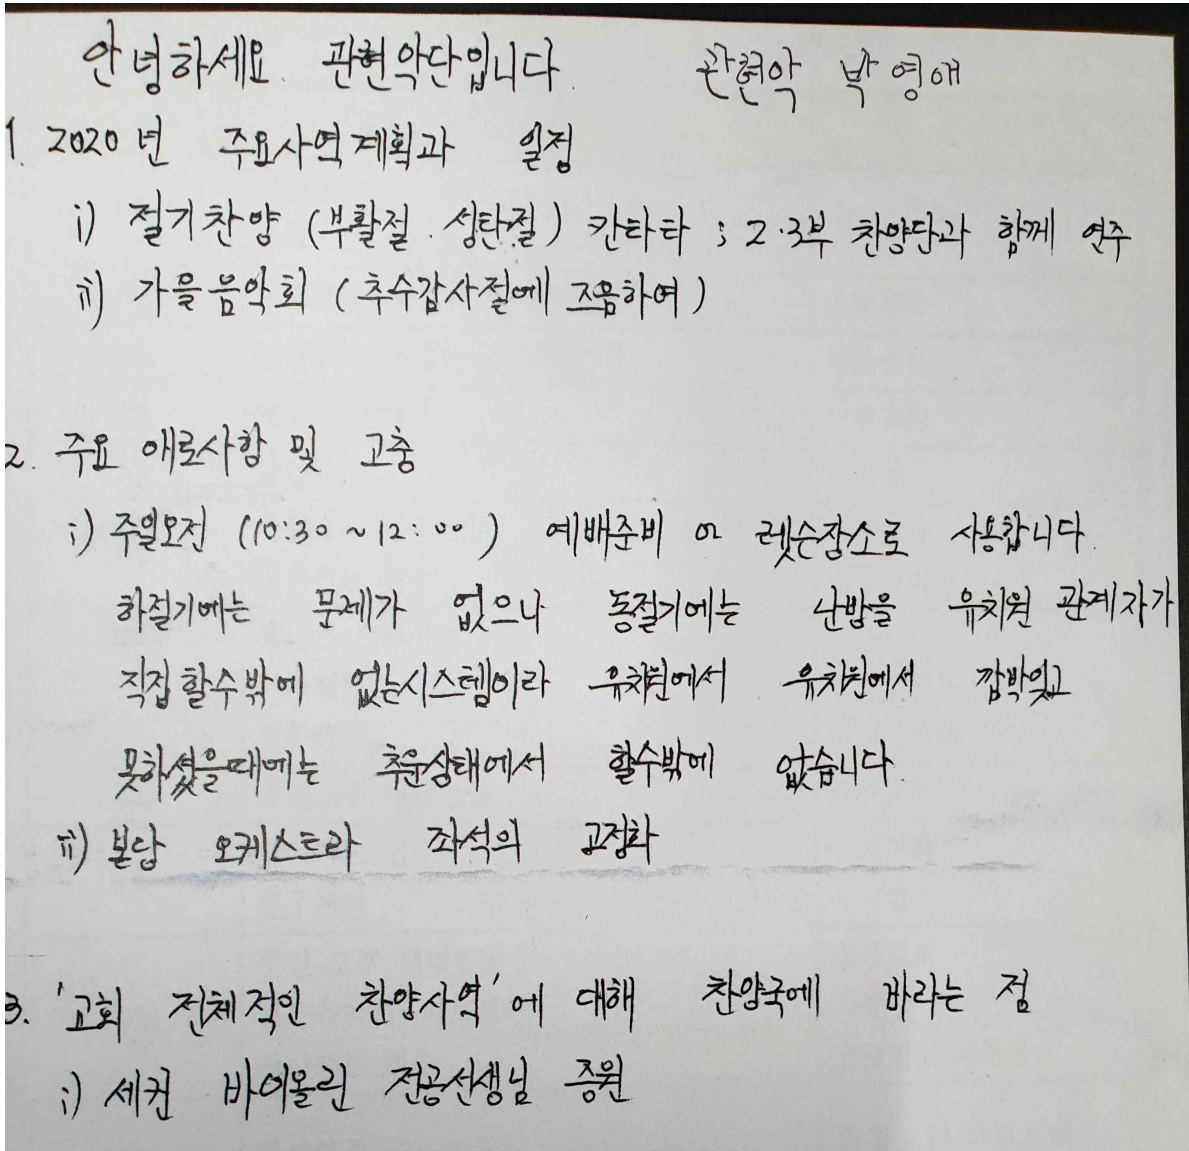 안녕하세요. 관현악단입니다. 관현악 박영애
1. 2020년 주요사역계획과 일정
i) 절기찬양 (부활절. 성탄절) 칸타타 ; 2·3부 찬양단과 함께 연주
ii) 가을음악회 (추수감사절에 즈음하여)
2. 주요 애로사항 및 고충
i) 주일오전 (10:30 ~ 12:00) 예배준비 or 렛슨장소로 사용합니다.
하절기에는 문제가 없으나 동절기에는 난방을 유치원 관계자가
직접할수밖에 없는시스템이라 유치원에서 유치원에서 깜박잊고
못하셨을때에는 추운상태에서 할수밖에 없습니다.
ii) 본당 오케스트라 좌석의 고정화
3. '교회 전체적인 찬양사역'에 대해 찬양국에 바라는 점
i) 세컨 바이올린 전공선생님 증원